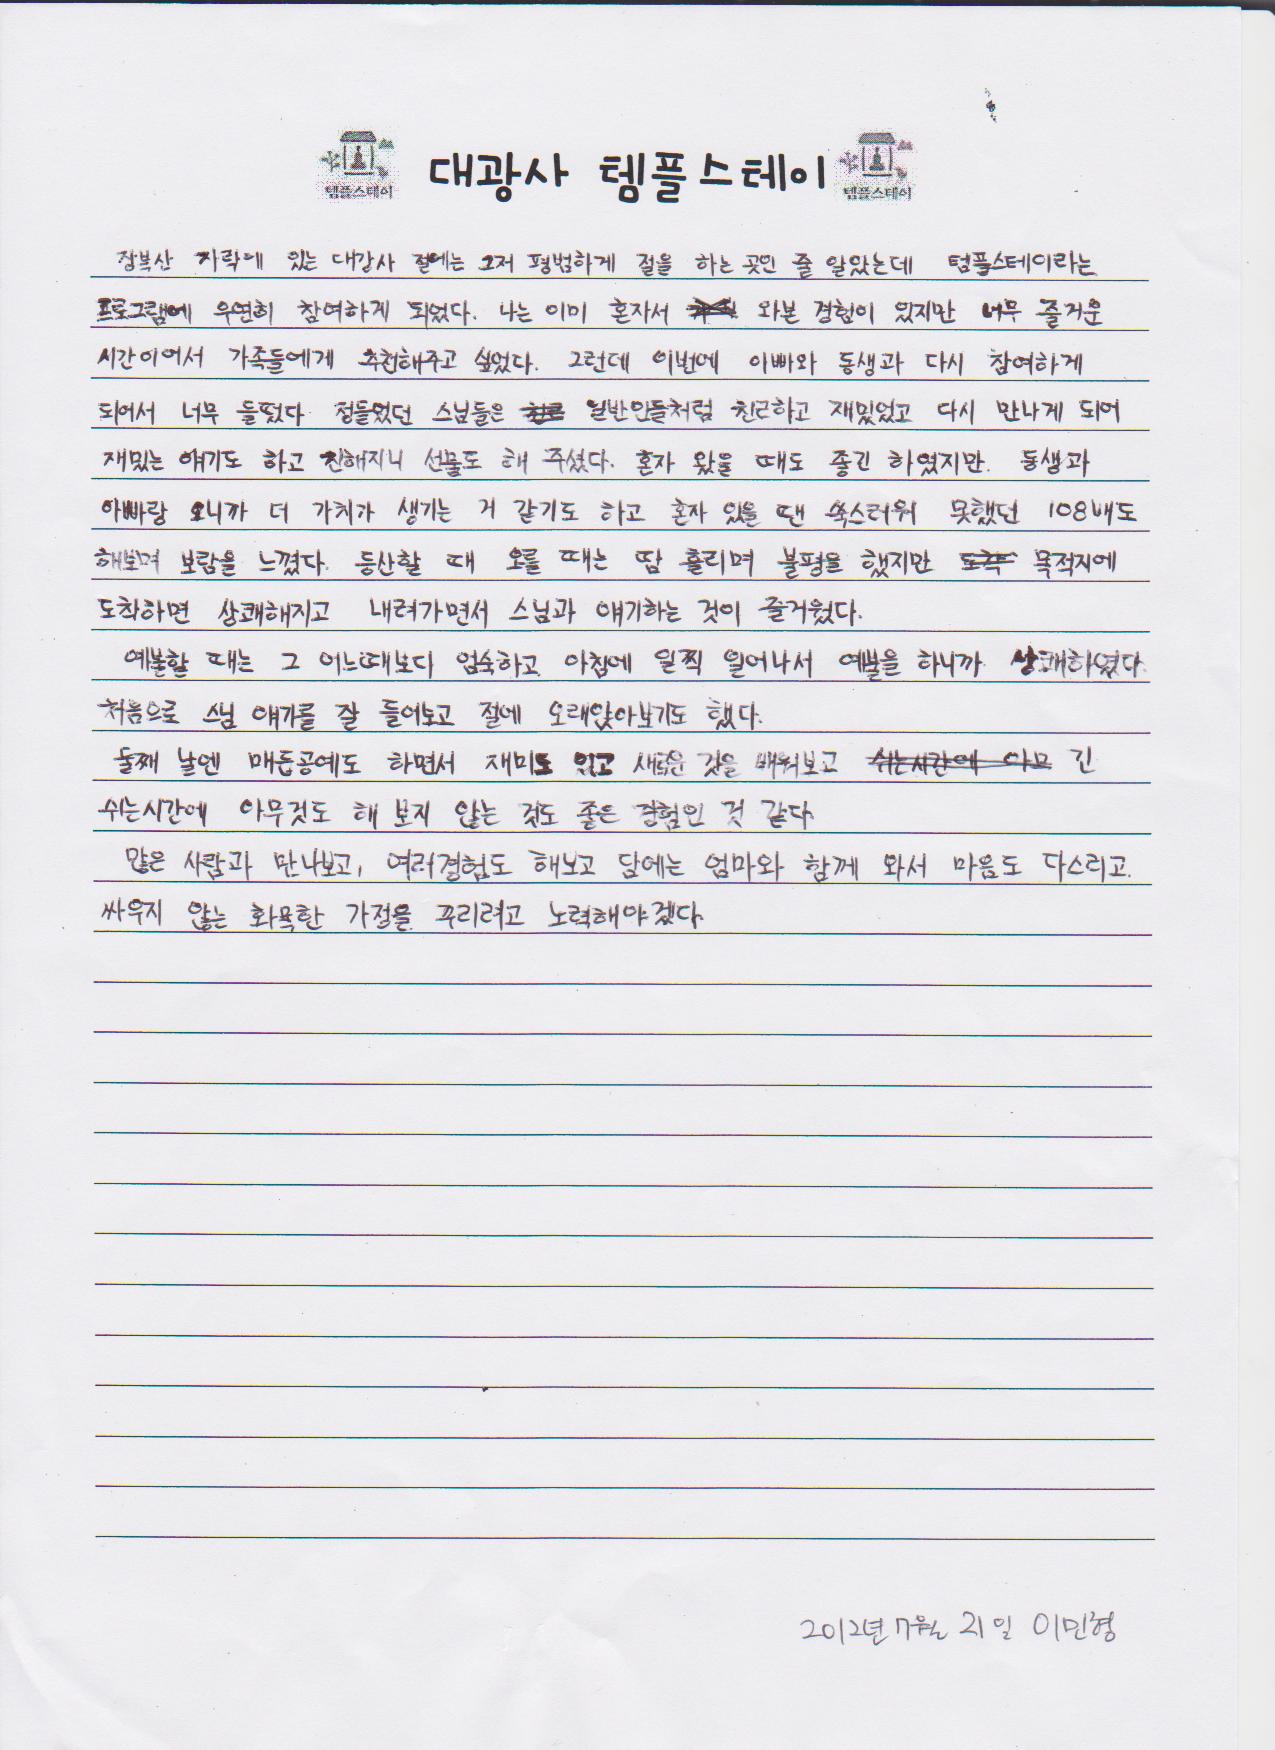 대광사 템플스테이
템플스테이
템플스테이
장복산 자락에 있는 대강사 절에는 그저 평범하게 절을 하는 곳인 줄 알았는데 템플스테이라는
프로그램에 우연히 참여하게 되었다. 나는 이미 혼자서 와본 경험이 있지만 너무 즐거운
시간이어서 가족들에게 추천해주고 싶었다. 그런데 이번에 아빠와 동생과 다시 참여하게
되어서 너무 들떴다 정들었던 스님들은 일반인들처럼 친근하고 재밌었고 다시 만나게 되어
재밌는 얘기도 하고 친해지니 선물도 해 주셨다. 혼자 왔을 때도 좋긴 하였지만. 동생과
아빠랑 오니까 더 가치가 생기는 거 같기도 하고 혼자 있을 땐 쑥스러워 못했던 108배도
해보며 보람을 느꼈다. 등산할 때 오를 때는 땀 흘리며 불평을 했지만 목적지에
도착하면 상쾌해지고 내려가면서 스님과 얘기하는 것이 즐거웠다.
예불할 때는 그 어느때보다 엄숙하고 아침에 일찍 일어나서 예불을 하니까 상쾌하였다.
처음으로 스님 얘기를 잘 들어보고 절에 오래앉아보기도 했다.
둘째 날엔 매듭공예도 하면서 재미도 있고 새로운 것을 배워보고 쉬는시간에 아무 긴
쉬는시간에 아무것도 해 보지 않는 것도 좋은 경험인 것 같다.
많은 사람과 만나보고, 여러경험도 해보고 담에는 엄마와 함께 와서 마음도 다스리고.
싸우지 않는 화목한 가정을 꾸리려고 노력해야겠다.
2012년 7월 21일 이민형